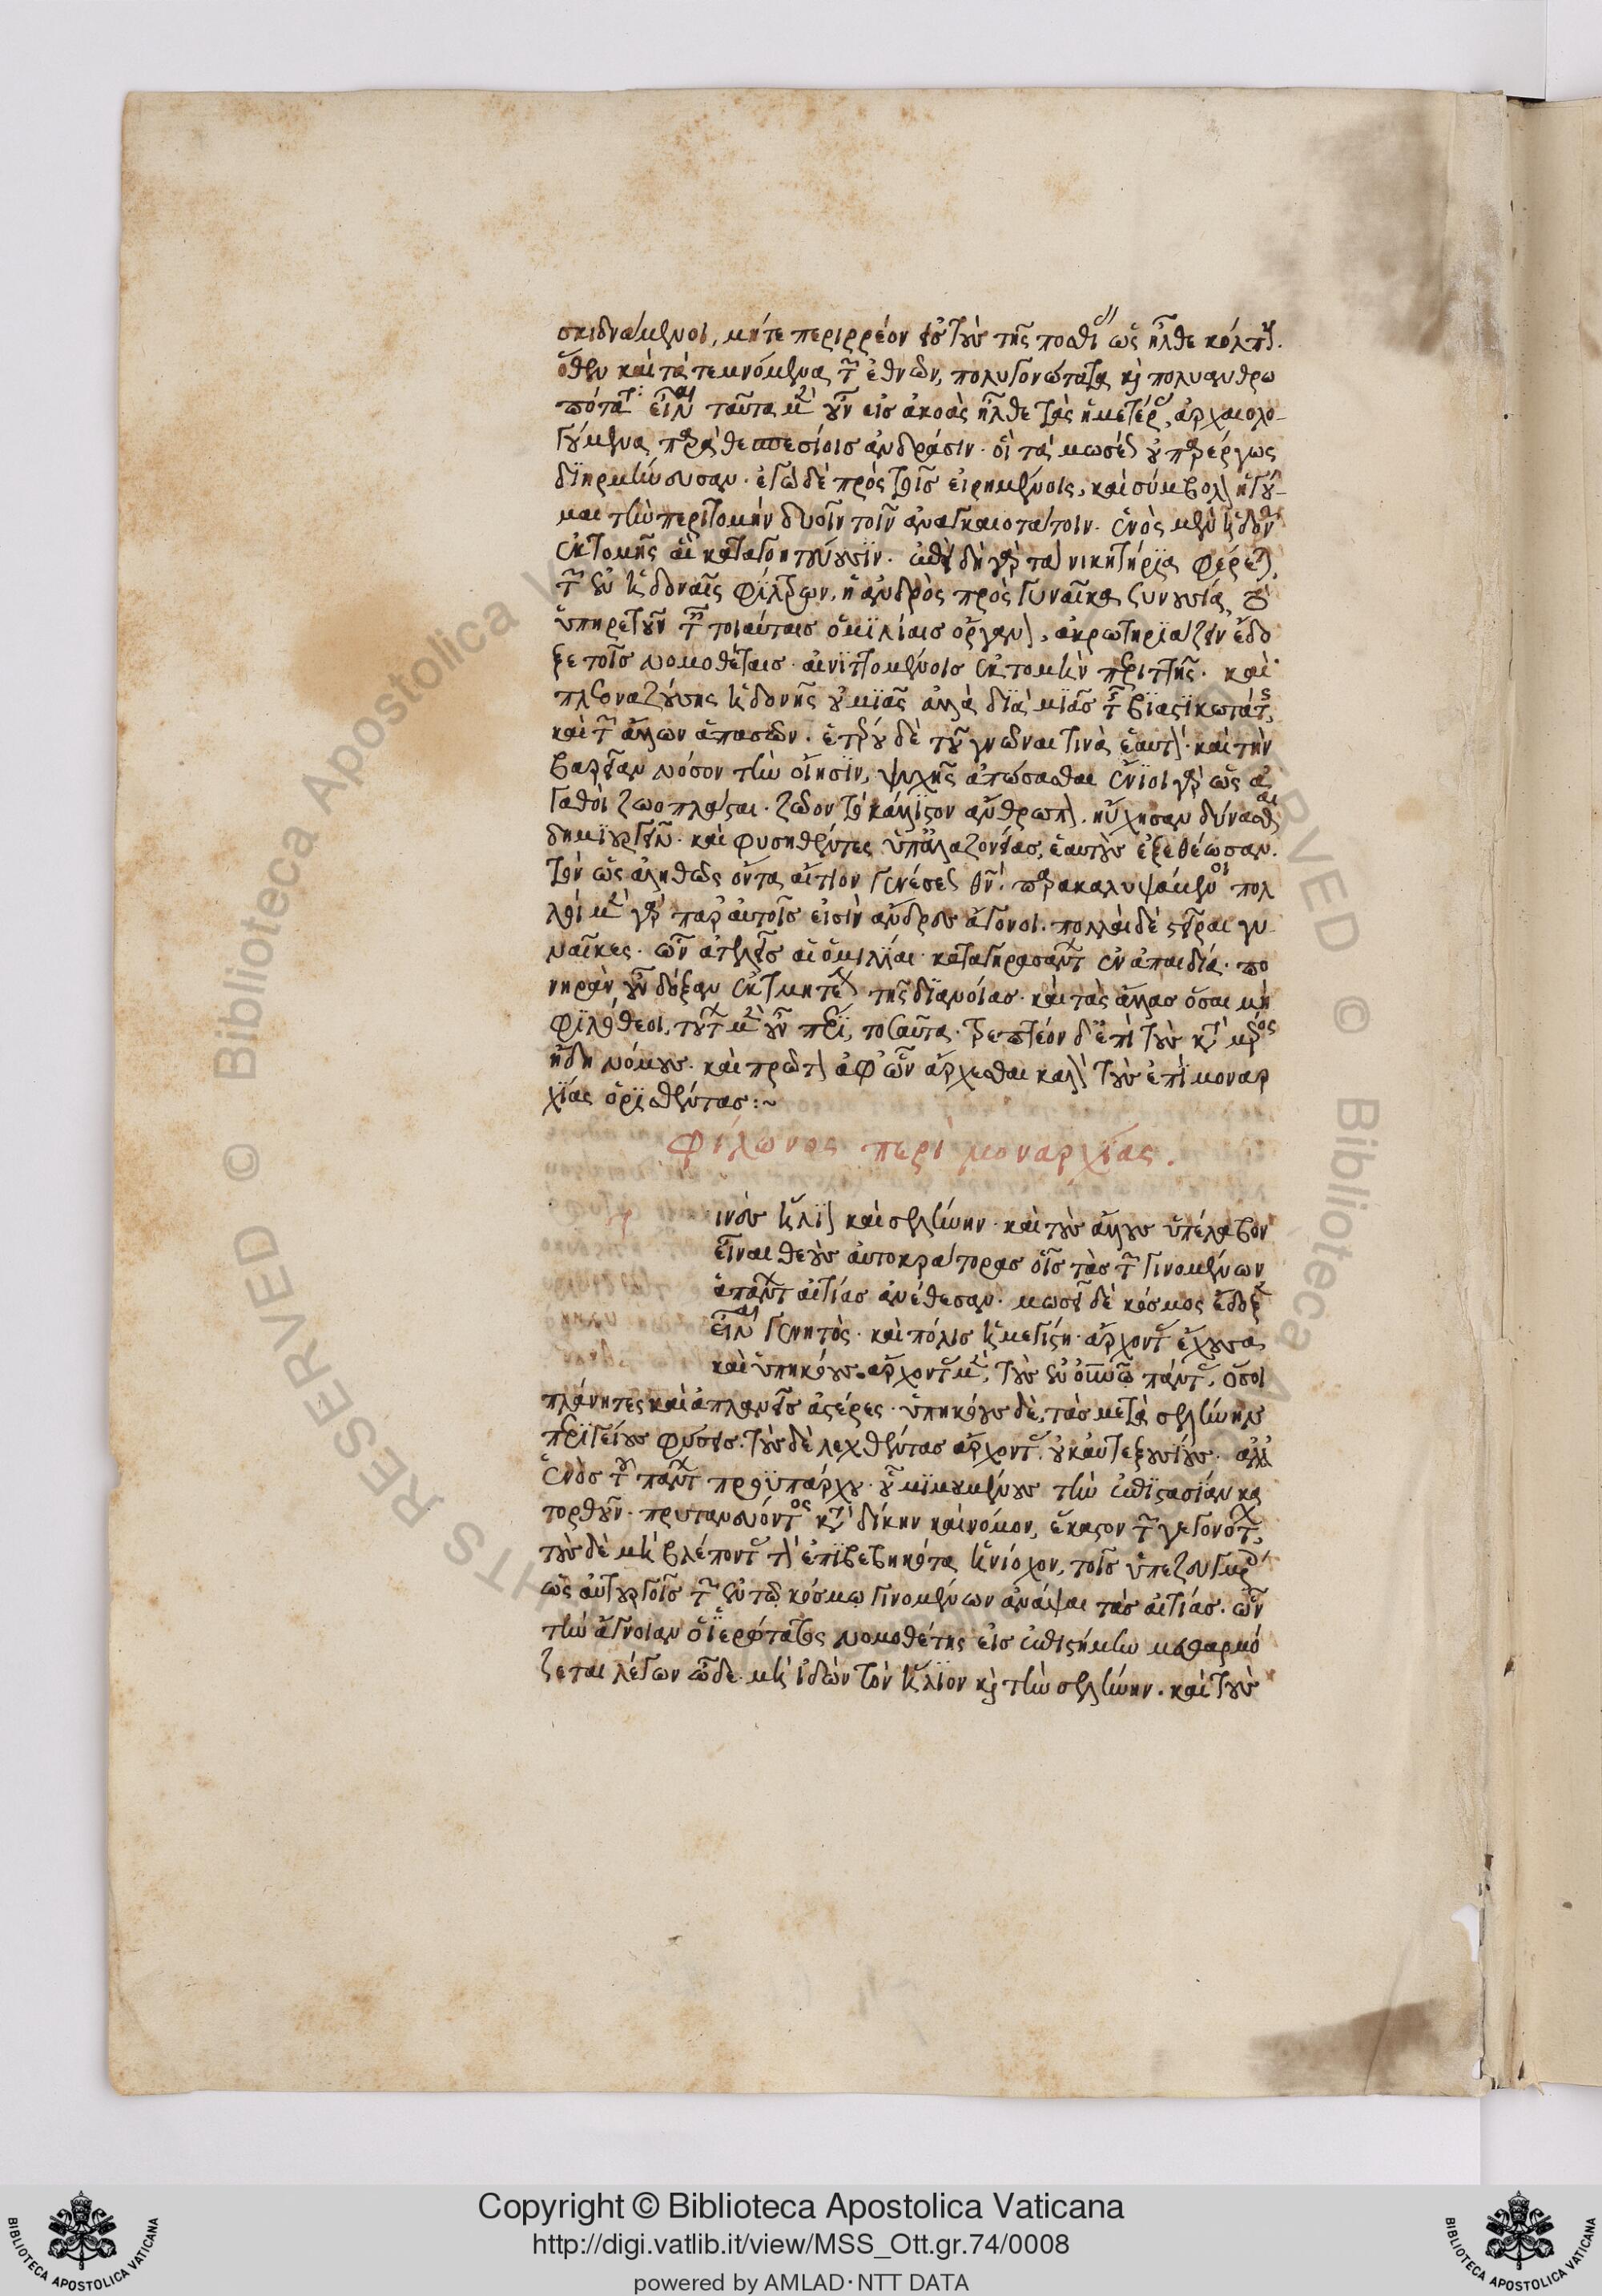 σκιδνάμενοι, μήτε περιρρέον εἰς τοὺς τῆς πόσθης ὡς ἦλθε κόλπους.
ὅθεν καὶ τὰ τεμνόμενα τῶν ἐθνῶν, πολυγονώτατα καὶ πολυανθρω
πότατα εἶναι ταῦτα μὲν οὖν εἰς ἀκοὰς ἦλθε τὰς ἡμετέρας, ἀρχαιολο-
γούμενα παρὰ θεσπεσίοις ἀνδράσιν· οἳ τὰ μωσέως οὐ παρέργως
διηρμήνευσαν· ἐγὼ δὲ πρὸς τοῖς εἰρημένοις, καὶ σύμβολον ἡγοῦ-
μαι τὴν περιτομὴν δυοῖν τοῖν ἀναγκαιοτάτοιν· ἑνὸς μὲν ἡδονῶν
ἐκτομῆς αἳ καταγοητεύουσιν· ἐπειδὴ γὰρ τὰ νικητήρια φέρεται,
τῶν ἐν ἡδοναῖς φίλτρων, ἡ ἀνδρὸς πρὸς γυναῖκα συνουσία τὸ
ὑπηρετοῦν ταῖς τοιαύταις ὁμιλίαις ὄργανον, ἀκρωτηριάζειν ἔδο
ξε τοῖς νομοθέταις· αἰνιττομένοις ἐκτομὴν περιττῆς· καὶ
πλεοναζούσης ἡδονῆς οὐ μιᾶς ἀλλὰ διὰ μιᾶς τῆς βιαστικωτάτης,
καὶ τῶν ἄλλων ἁπασῶν· ἑτέρου δὲ τοῦ γνῶναι τινὰ ἑαυτόν· καὶ τὴν
βαρεῖαν νόσον τὴν οἴησιν, ψυχῆς ἀπώσασθαι ἔνιοι γὰρ ὡς ἀ
γαθοὶ ζωοπλάσται· ζῶον τὸ κάλλιστον ἄνθρωπον, ηὔχησαν δύνασθαι
δημιουργεῖν· καὶ φυσηθέντες ὑπ' ἀλαζονείας, ἑαυτοὺς ἐξεθέωσαν.
τὸν ὡς ἀληθῶς ὄντα αἴτιον γενέσεως θεὸν παρακαλυψάμενοι πολ
λοὶ μὲν γὰρ παρ' αὐτοῖς εἰσὶν ἄνδρες ἄγονοι· πολλαὶ δὲ στεῖραι γυ-
ναῖκες· ὧν ἀτελεῖς αἱ ὁμιλίαι καταγηρασάντων ἐν ἀπαιδίᾳ· πο
νηρὰν οὖν δόξαν ἐκτμητέον τῆς διανοίας· καὶ τὰς ἄλλας ὅσαι μὴ
φιλόθεοι, τούτων μὲν οὖν περὶ, τοσαῦτα· τρεπτέον δ' ἐπὶ τοὺς κατὰ μέρος
ἤδη νόμους· καὶ πρῶτον ἀφ' ὧν ἄρχεσθαι καλὸν τοὺς ἐπὶ μοναρ
χίας ὁρισθέντας :~
Φίλωνος περὶ μοναρχίας.
τινὲς ἥλιον καὶ σελήνην· καὶ τοὺς ἄλλους ὑπέλαβον
εἶναι θεοὺς αὐτοκράτορας οἷς τὰς τῶν γινομένων
ἁπάντων αἰτίας ἀνέθεσαν· μωσεῖ δὲ κόσμος ἔδοξεν
εἶναι γενητὸς· καὶ πόλις ἡ μεγίστη· ἄρχοντας ἔχουσα
καὶ ὑπηκόους· ἄρχοντας μὲν, τοὺς ἐν οὐρανῷ πάντας, ὅσοι
πλάνητες καὶ ἀπλανεῖς ἀστέρες· ὑπηκόους δὲ, τὰς μετὰ σελήνην
περιγείους φύσεις· τοὺς δὲ λεχθέντας ἄρχοντας οὐκ αὐτεξουσίους· ἀλλ'
ἑνὸς τοῦ πάντων προϋπάρχου· οὗ μιμουμένους τὴν ἐπιστασίαν κα
τορθοῦν· πρυτανεύοντος κατὰ δίκην καὶ νόμον, ἕκαστον τῶν γεγονότων,
τοὺς δὲ μὴ βλέποντας τὸν ἐπιβεβηκότα ἡνίοχον, τοῖς ὑπεζευγμένοις
ὡς αὐτουργοῖς τῶν ἐν τῷ κόσμῳ γινομένων ἀνάψαι τὰς αἰτίας· ὧν
τὴν ἄγνοιαν ὁ ἱερώτατος νομοθέτης εἰς ἐπιστήμην μεθαρμό
ζεται λέγων ὧδε· μὴ ἰδὼν τὸν ἥλιον καὶ τὴν σελήνην· καὶ τοὺς
Copyright © Biblioteca Apostolica Vaticana
http://digi.vatlib.it/view/MSS_Ott.gr.74/0008
powered by AMLAD·NTT DATA